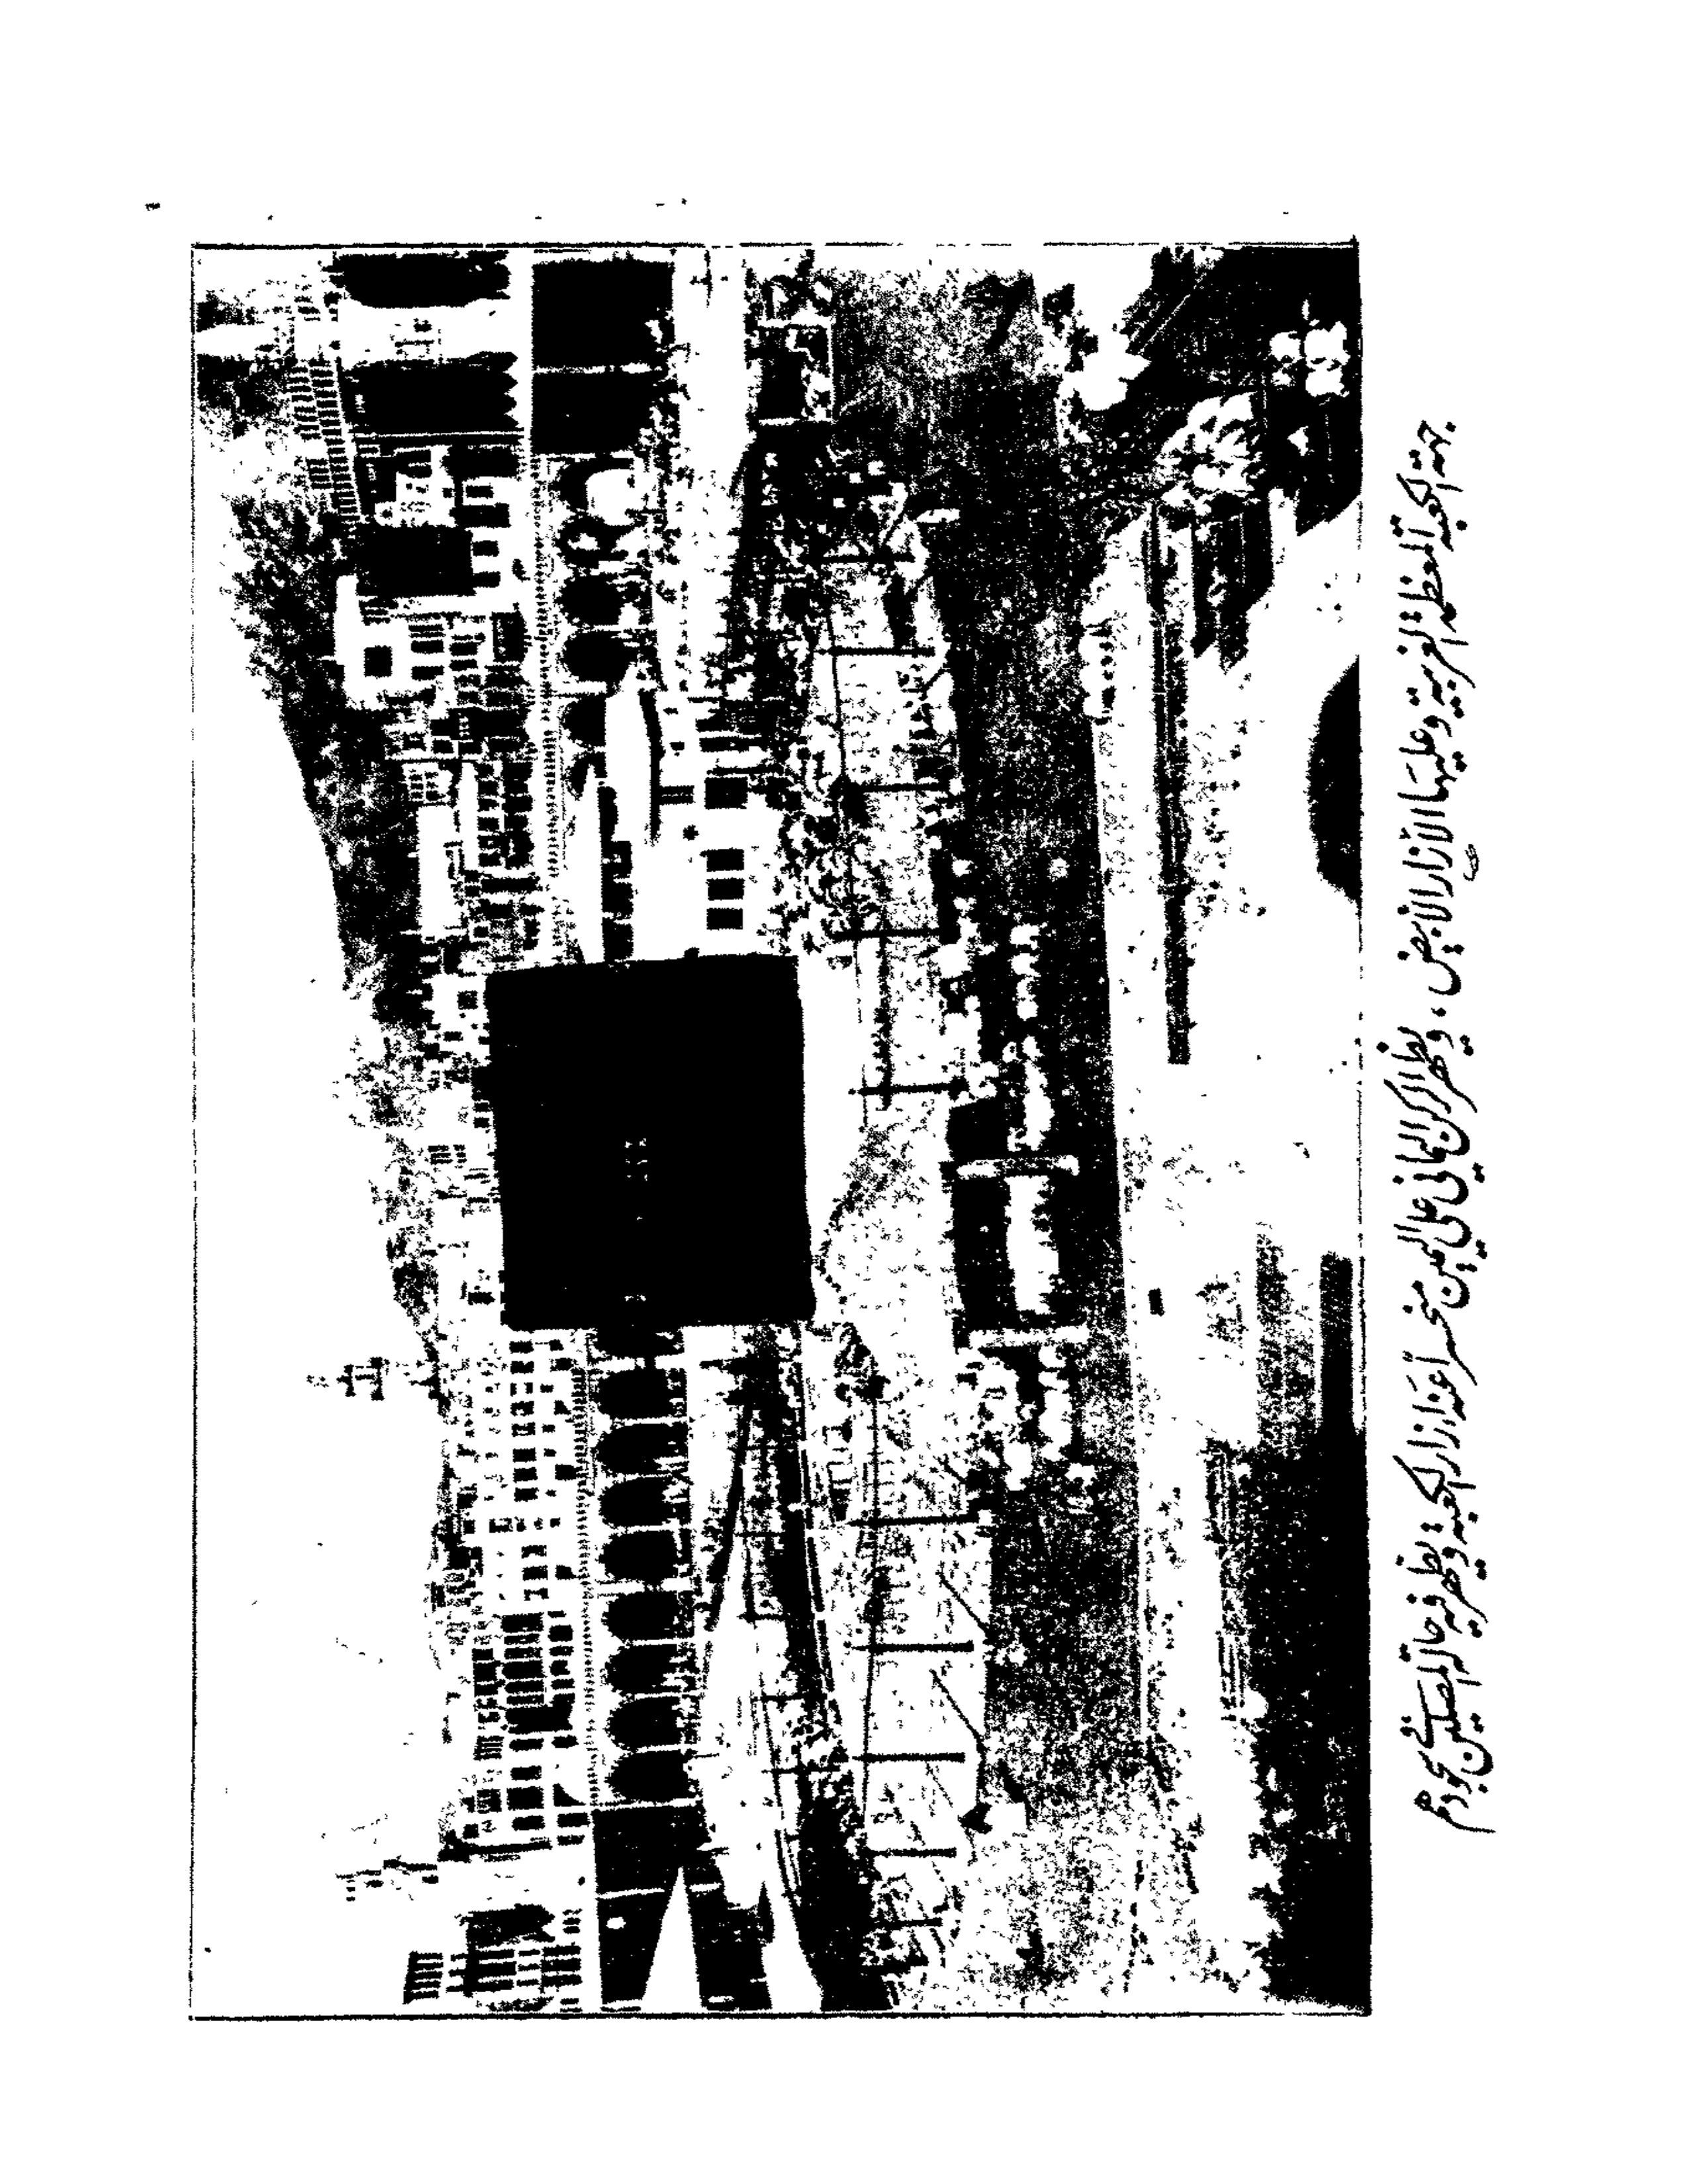 جهة الكعبة المعظمة الغربية وعليها الازار الابيض ، ويظهر الركن اليماني على اليمين منحسراً عنه ازار الكعبة ويظهر فيه حالة المصلين في سجودهم